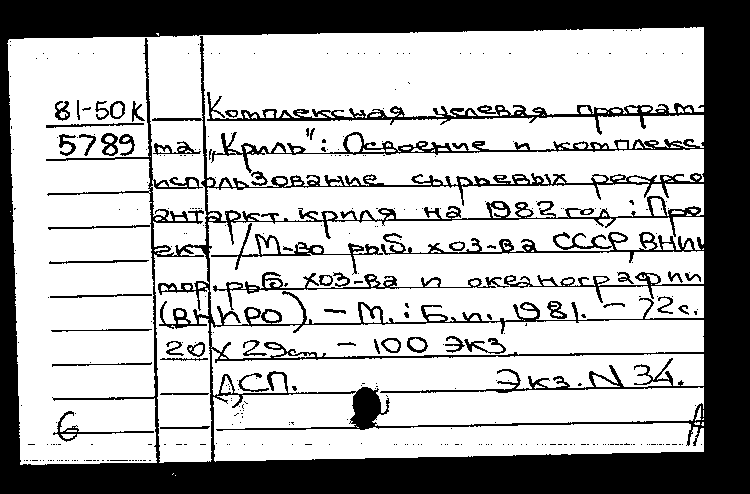 81-50К Комплексная целевая програм-
5789 ма „Криль": Освоение и комплекс.
использование сырьевых ресурсо
антаркт. криля на 1982 год : Про
ект / М-во рыб. хоз-ва СССР, ВНИИ
мор. рыб. хоз-ва и океанографии
(ВНИРО). — М. : Б.и., 1981. — 72 с.
20 х 29 см. — 100 экз.
ДСП. Экз. N 34.
6